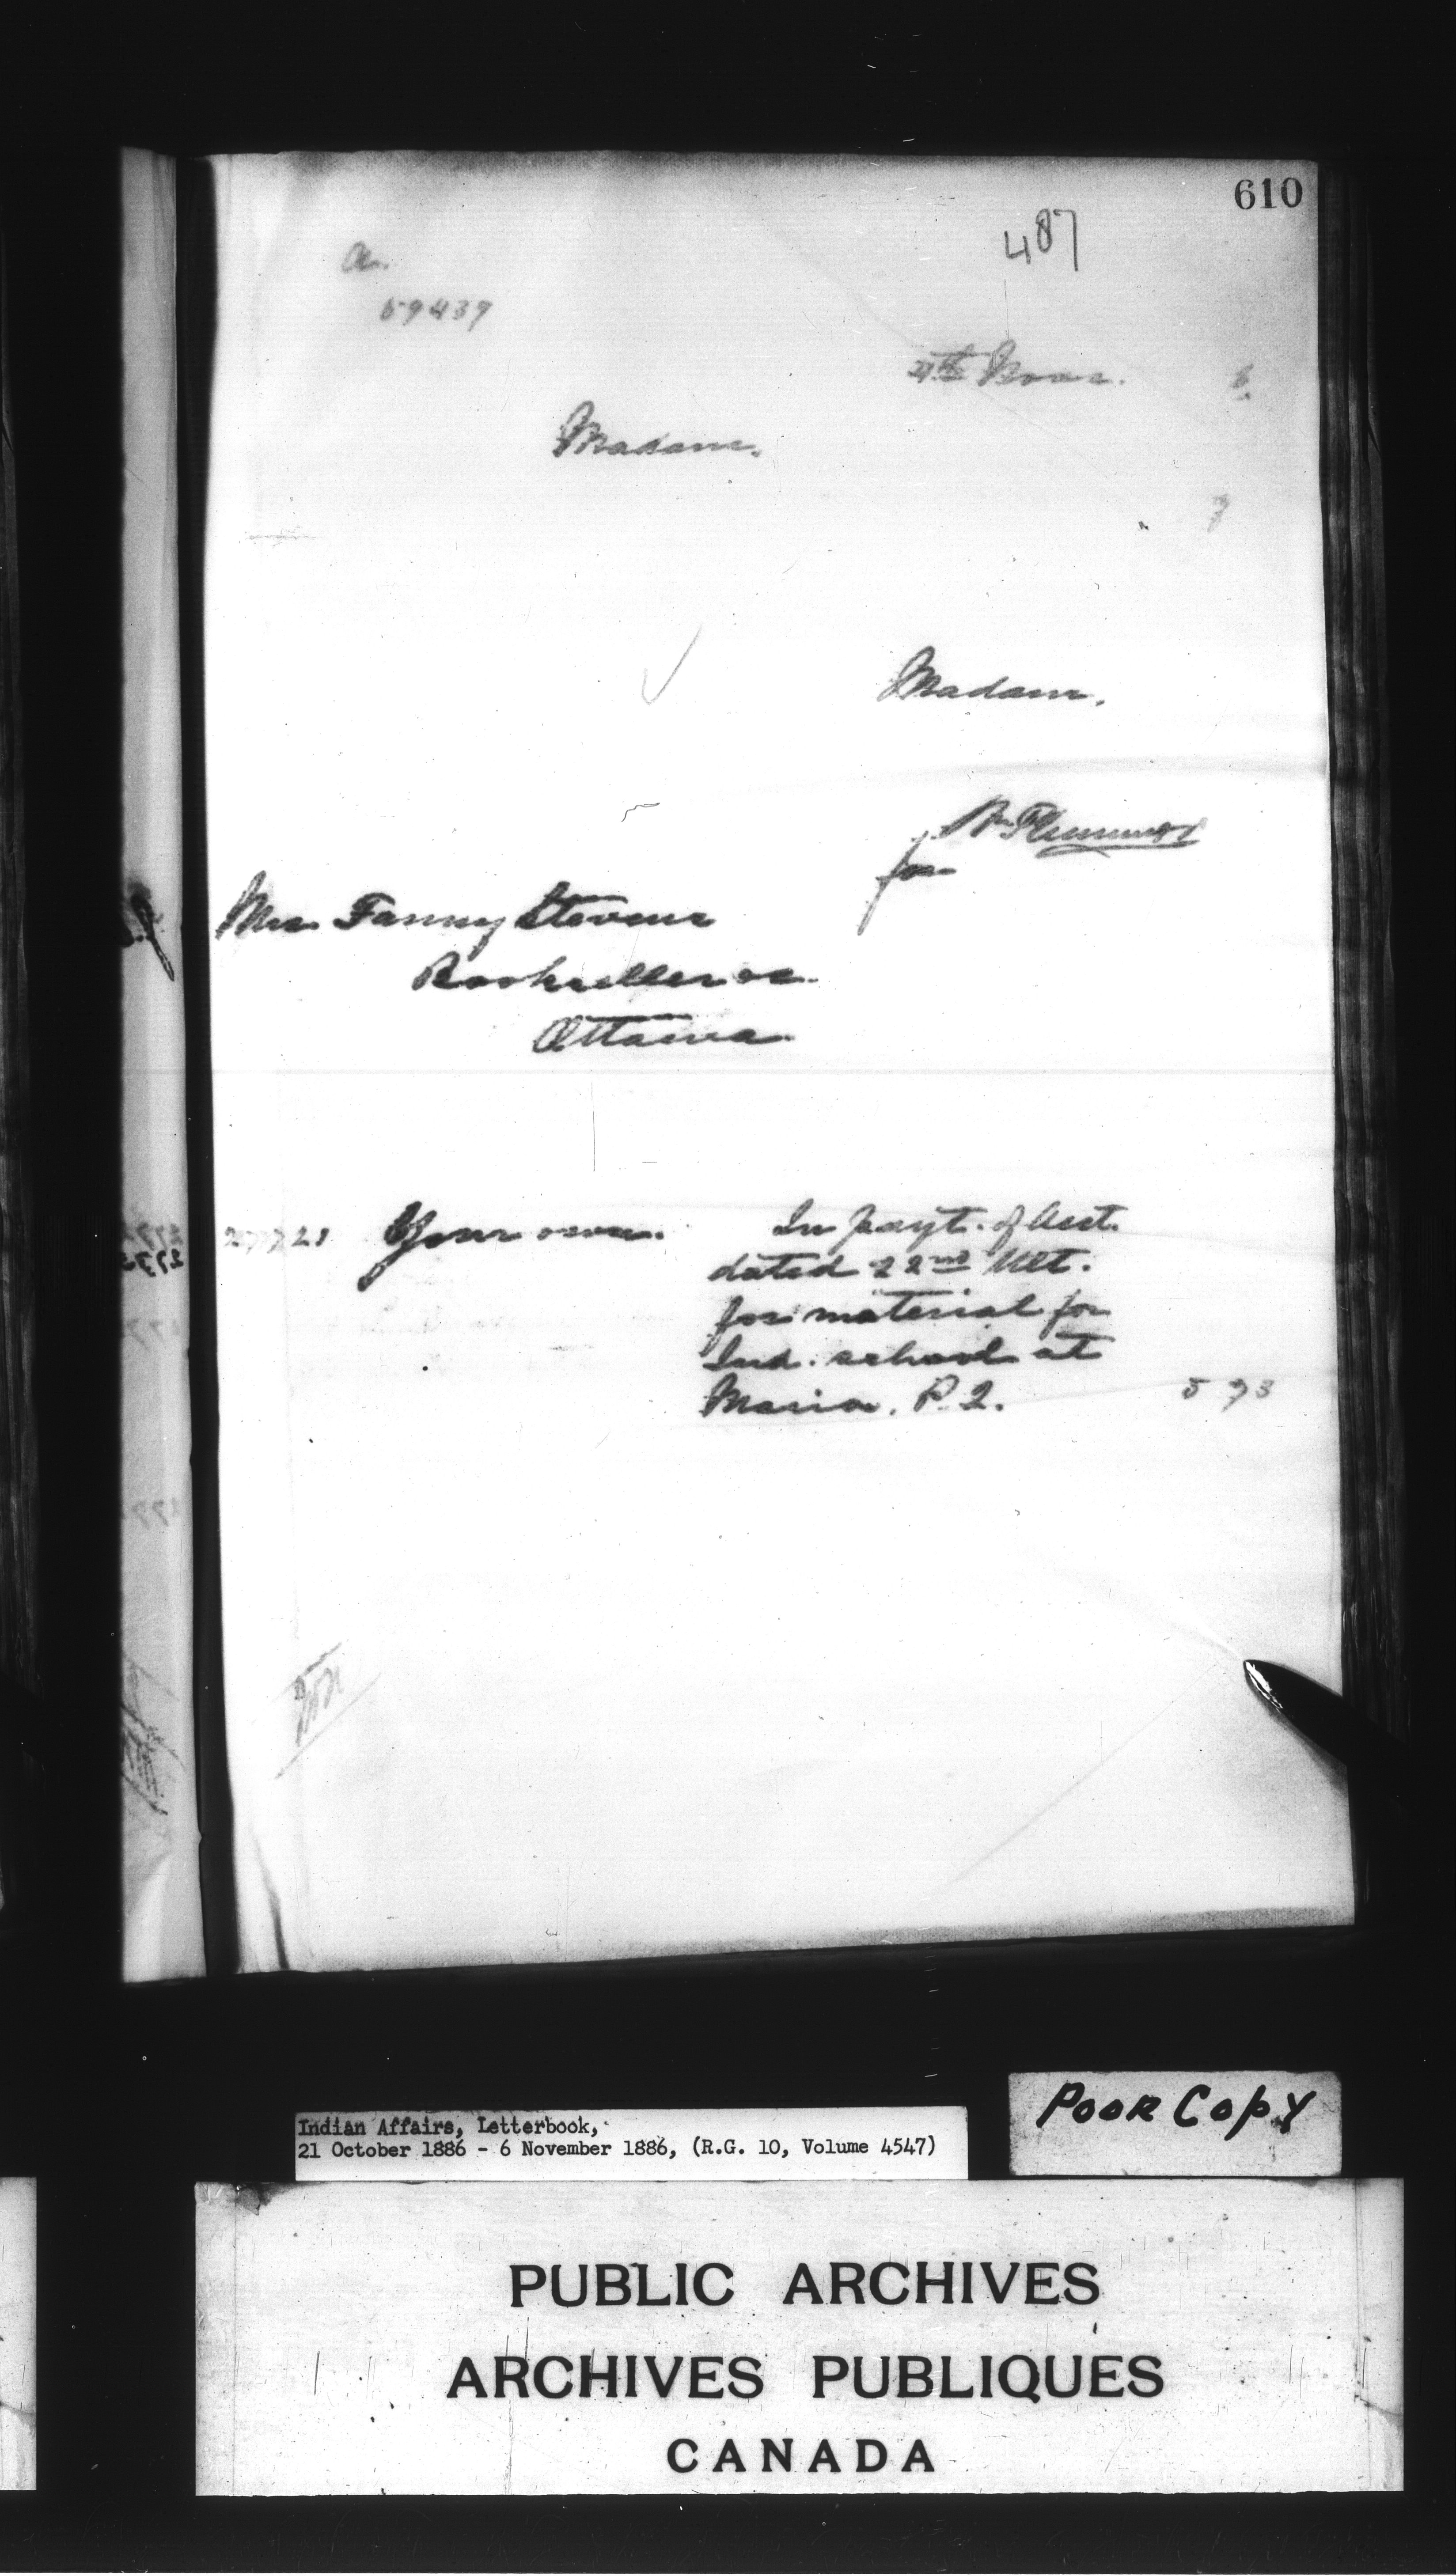 610
487
a.
59439
4th Novr. 6.
Madam.
Madam,
Wm Plummer
for
Mrs. Fanny Stevens
Bookseller &c.
Ottawa.
Your own. In payt. of Acct.
dated 22nd Ult.
for material for
Ind. school at
Maria. P.Q. 5 93
Poor Copy
Indian Affairs, Letterbook,
21 October 1886 - 6 November 1886, (R.G. 10, Volume 4547)
PUBLIC ARCHIVES
ARCHIVES PUBLIQUES
CANADA